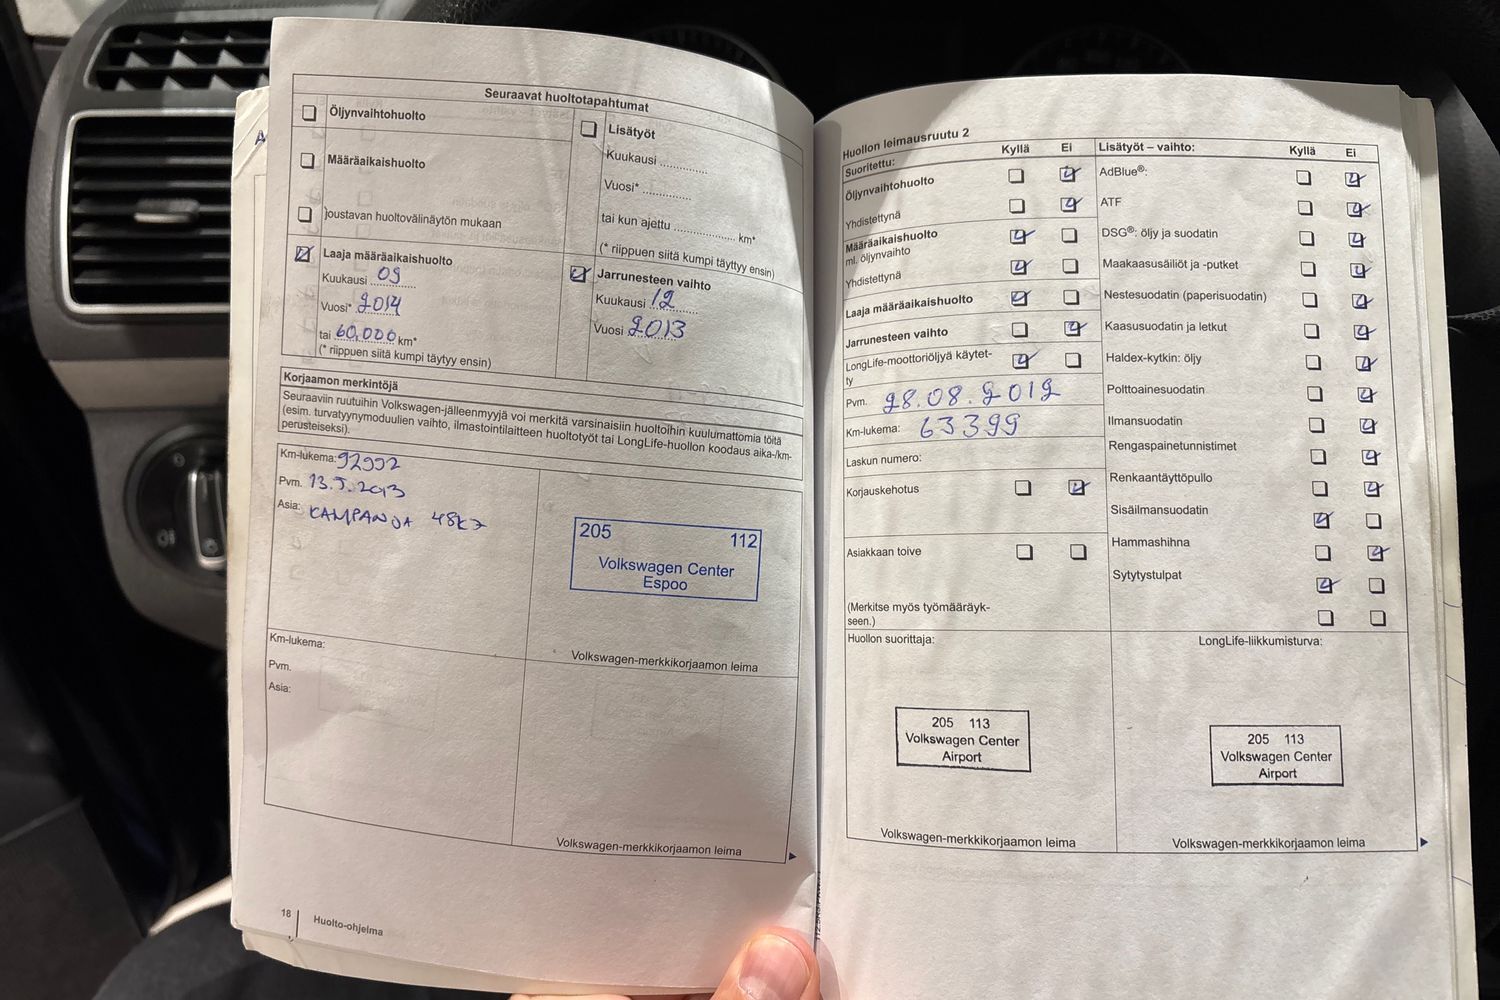 Seuraavat huoltotapahtumat
Öljynvaihtohuolto
Määräaikaishuolto
Joustavan huoltovälinäytön mukaan
Laaja määräaikaishuolto
Kuukausi 09
Vuosi* 2014
tai 60.000 km*
(* riippuen siitä kumpi täytyy ensin)
Lisätyöt
Kuukausi ..............
Vuosi* ..............
tai kun ajettu .................. km*
(* riippuen siitä kumpi täyttyy ensin)
Jarrunesteen vaihto
Kuukausi 12
Vuosi 2013
Korjaamon merkintöjä
Seuraaviin ruutuihin Volkswagen-jälleenmyyjä voi merkitä varsinaisiin huoltoihin kuulumattomia töitä
(esim. turvatyynymoduulien vaihto, ilmastointilaitteen huoltotyöt tai LongLife-huollon koodaus aika-/km-
perusteiseksi).
Km-lukema: 92992
Pvm. 13.5.2013
Asia: KAMPANJA 48K7
205 112
Volkswagen Center
Espoo
Volkswagen-merkkikorjaamon leima
Km-lukema:
Pvm.
Asia:
Volkswagen-merkkikorjaamon leima
18 Huolto-ohjelma
Huollon leimausruutu 2
Suoritettu: Kyllä Ei
Öljynvaihtohuolto
Yhdistettynä
Määräaikaishuolto
ml. öljynvaihto
Yhdistettynä
Laaja määräaikaishuolto
Jarrunesteen vaihto
LongLife-moottoriöljyä käytet-
ty
Pvm. 28.08.2012
Km-lukema: 63399
Laskun numero:
Korjauskehotus
Asiakkaan toive
(Merkitse myös työmääräyk-
seen.)
Lisätyöt – vaihto: Kyllä Ei
AdBlue®:
ATF
DSG®: öljy ja suodatin
Maakaasusäiliöt ja -putket
Nestesuodatin (paperisuodatin)
Kaasusuodatin ja letkut
Haldex-kytkin: öljy
Polttoainesuodatin
Ilmansuodatin
Rengaspainetunnistimet
Renkaantäyttöpullo
Sisäilmansuodatin
Hammashihna
Sytytystulpat
Huollon suorittaja:
205 113
Volkswagen Center
Airport
Volkswagen-merkkikorjaamon leima
LongLife-liikkumisturva:
205 113
Volkswagen Center
Airport
Volkswagen-merkkikorjaamon leima